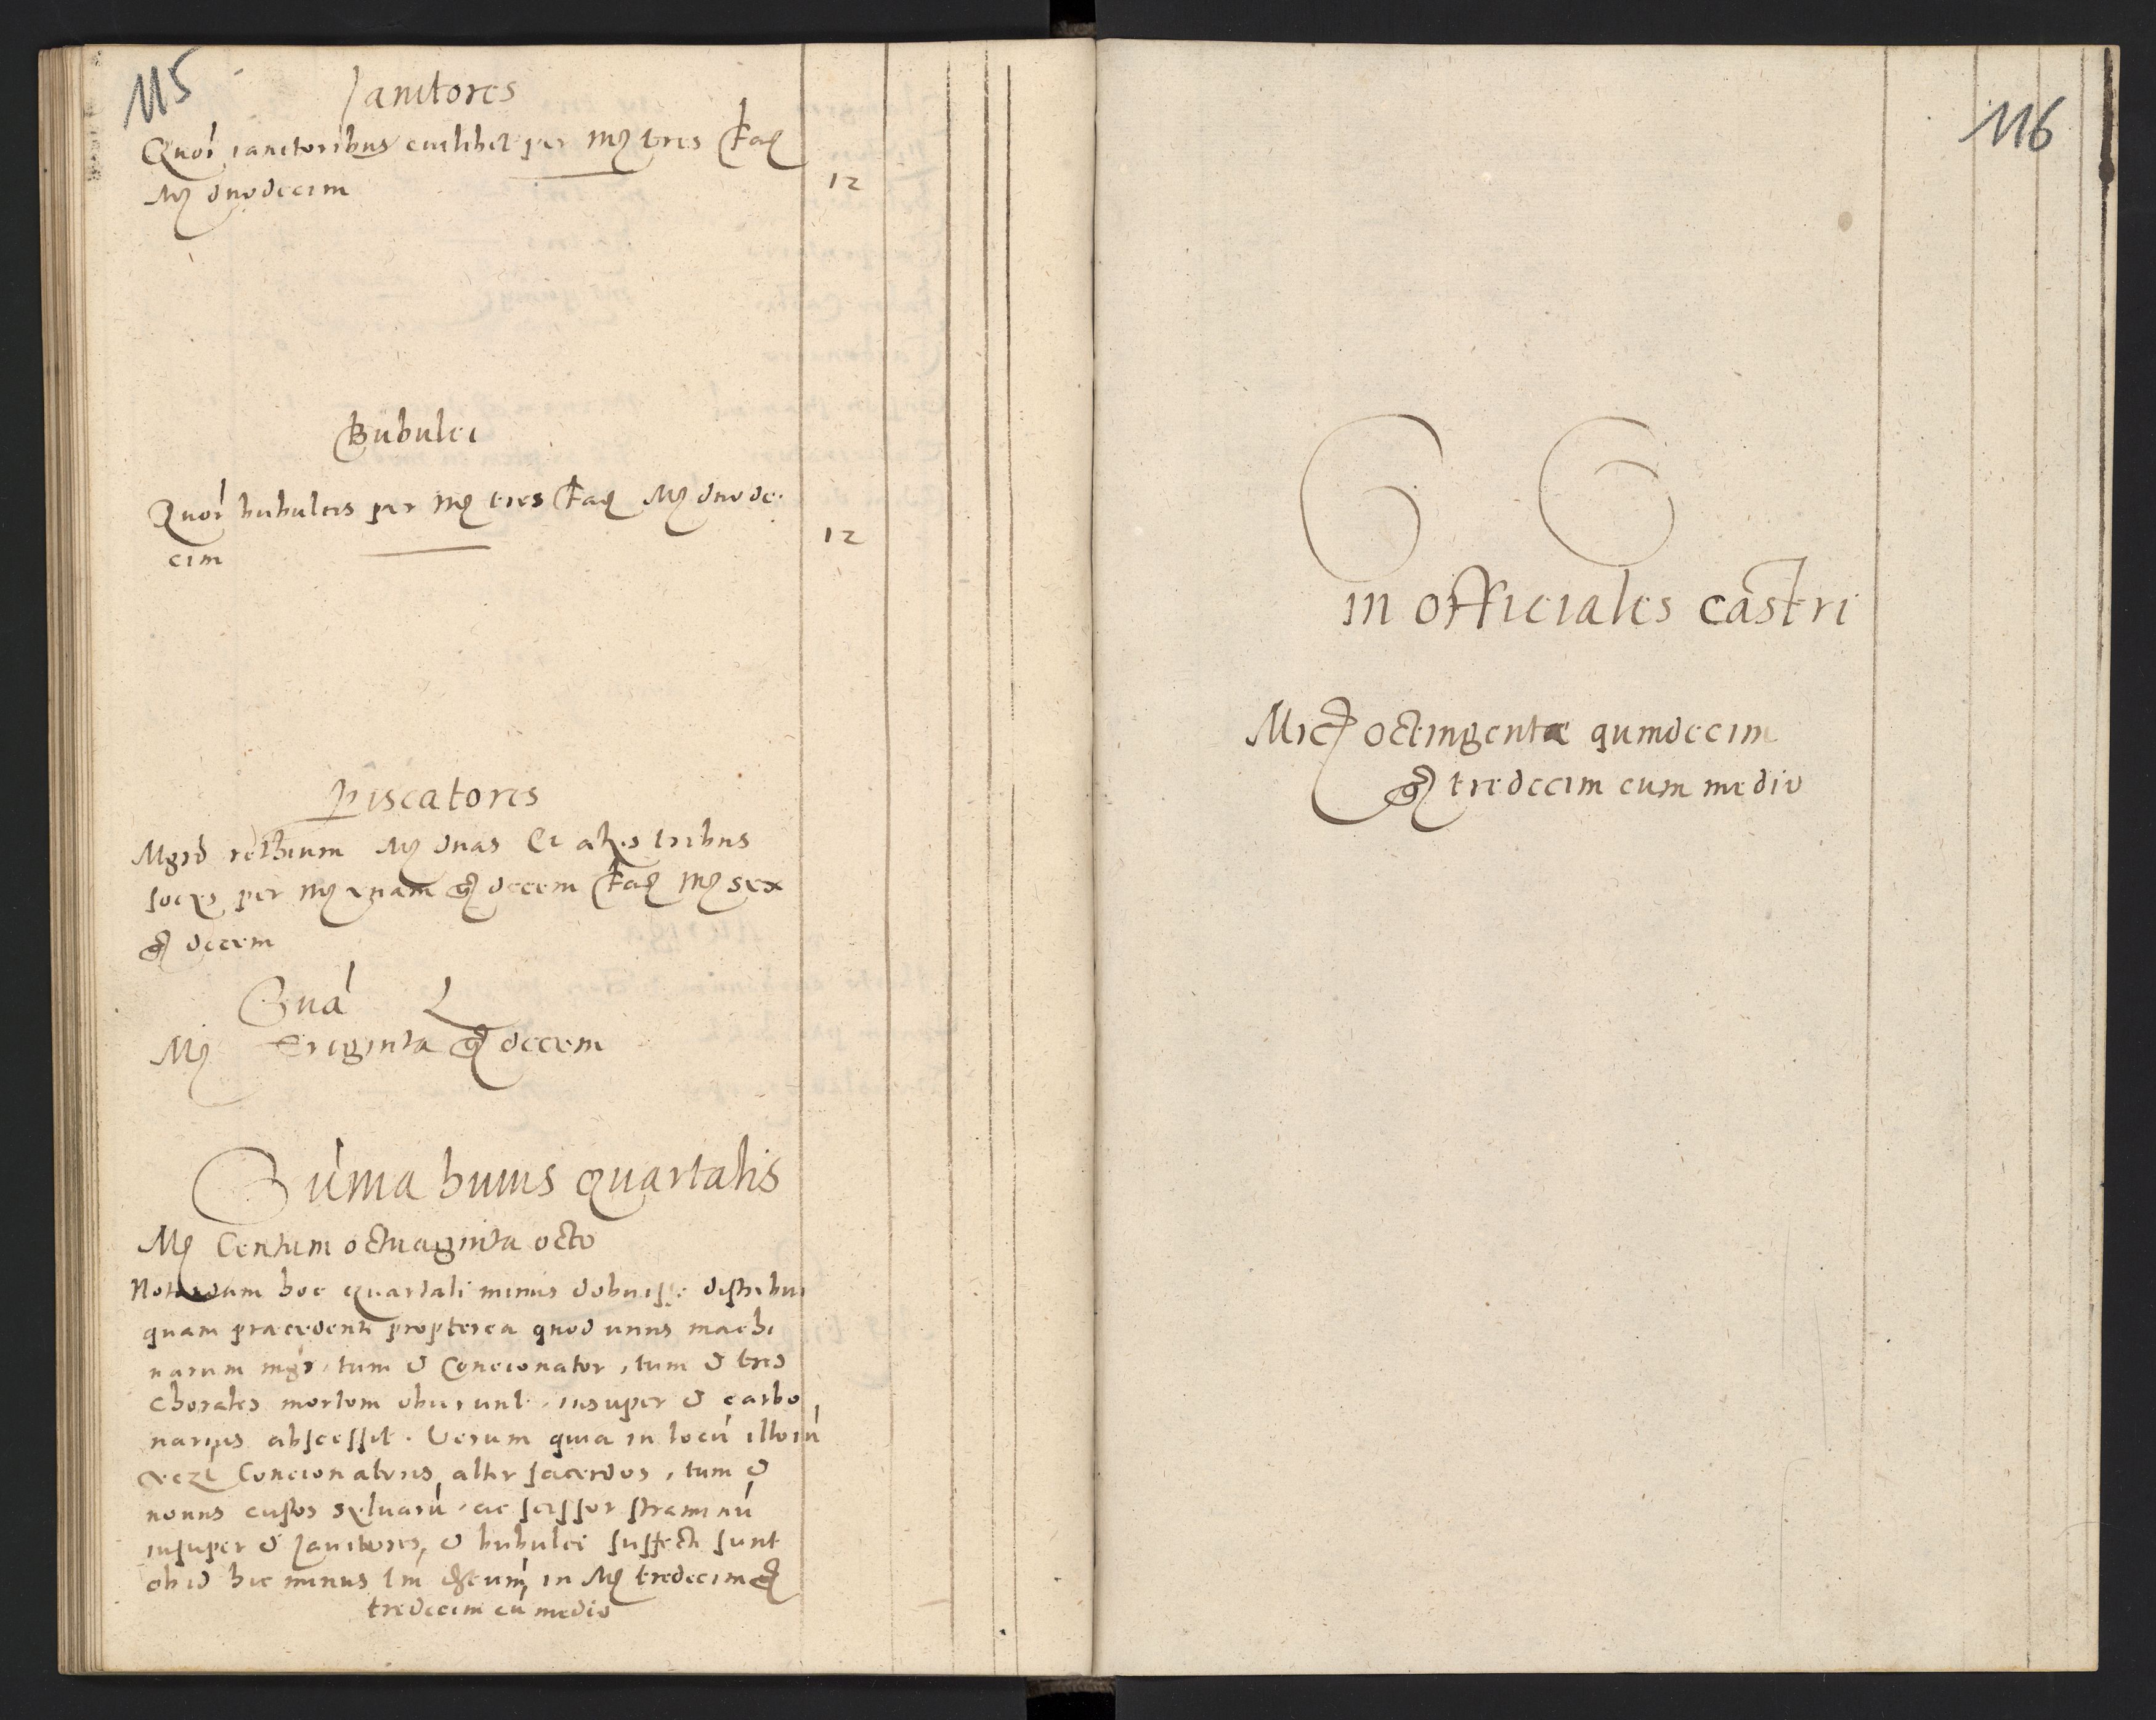 115
Janitores
Quor janitoribus cuilibet per M tres fac
M duodecim
12
Bubulci
Quor bubulcis per M tres fac M duode
cim
12
Piscatores
Mgro rethium M duas Et alijs tribus
socijs per M unam g decem fac M sex
g decem
Sua L
M Triginta g decem
Suma huius quartalis
M Centum octuaginta octo
Notandum hoc quartali minus debuisse distribui
quam praecedenti propterea quod unus machi
narum mgr, tum & Concionator, tum & tres
Chorales mortem obierunt, insuper & carbo
narius abscessit. Verum quia in locu illoru
Concionatoris alter sacerdos, tum &
nonus custos sylvaru, ac scissor straminu
insuper & Janitores, & bubulci suffecti sunt
ob id hic minus tm in M tredecim g
tredecim cu medio
116
in officiales castri
Mrc octingentae quindecim
g tredecim cum medio